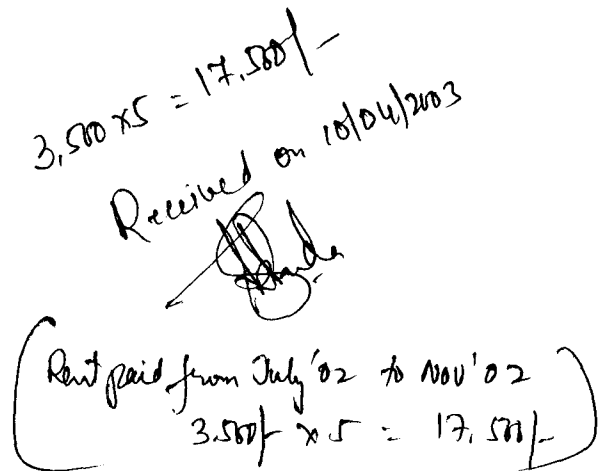 3,500 x 5 = 17,500/-
Received on 10/04/2003
(Rent paid from July '02 to Nov '02
3.500/- x 5 = 17,500/-)